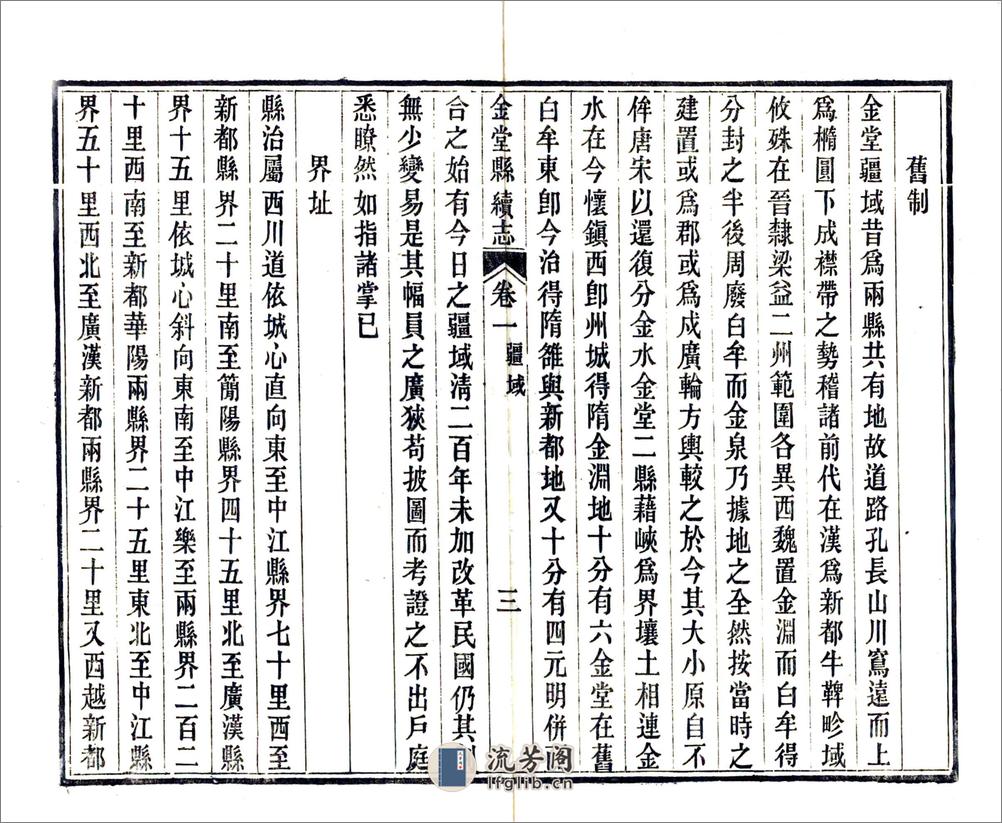 舊制
金堂疆域昔爲兩縣共有地故道路孔長山川窵遠而上
爲橢圓下成襟帶之勢稽諸前代在漢爲新都牛鞞畛域
攸殊在晉隸梁益二州範圍各異西魏置金淵而白牟得
分封之半後周廢白牟而金泉乃據地之全然按當時之
建置或爲郡或爲成廣輪方輿較之於今其大小原自不
侔唐宋以還復分金水金堂二縣藉峽爲界壤土相連金
水在今懷鎮西卽州城得隋金淵地十分有六金堂在舊
白牟東卽今治得隋雒與新都地又十分有四元明併
金堂縣續志 卷一 疆域 三
合之始有今日之疆域淸二百年未加改革民國仍其
無少變易是其幅員之廣狹苟披圖而考證之不出戶庭
悉瞭然如指諸掌已
界址
縣治屬西川道依城心直向東至中江縣界七十里西至
新都縣界二十里南至簡陽縣界四十五里北至廣漢縣
界十五里依城心斜向東南至中江樂至兩縣界二百二
十里西南至新都華陽兩縣界二十五里東北至中江縣
界五十里西北至廣漢新都兩縣界二十里又西越新都
流芳阁
lfglib.cn